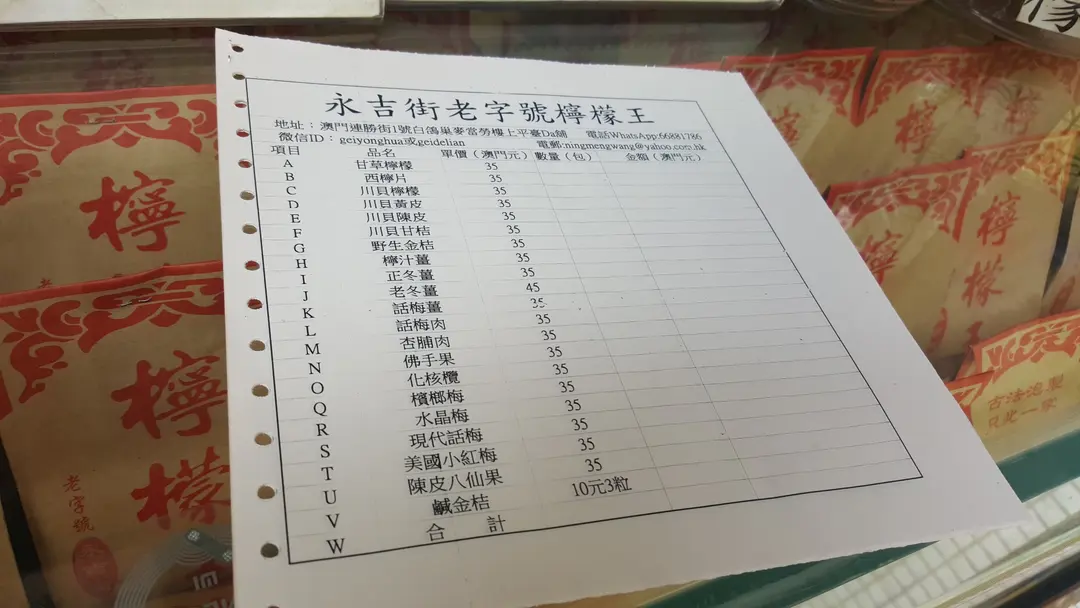 永吉街老字號檸檬王
地址：澳門連勝街1號白鴿巢麥當勞樓上平臺Da舖 電話WhatsApp:66881786
微信ID：geiyonghua或geidelian 電郵:ningmengwang@yahoo.com.hk
項目 品名 單價（澳門元） 數量（包） 金額（澳門元）
A 甘草檸檬 35
B 西檸片 35
C 川貝檸檬 35
D 川貝黃皮 35
E 川貝陳皮 35
F 川貝甘桔 35
G 野生金桔 35
H 檸汁薑 35
I 正冬薑 35
J 老冬薑 45
K 話梅薑 35
L 話梅肉 35
M 杏脯肉 35
N 佛手果 35
O 化核欖 35
Q 檳榔梅 35
R 水晶梅 35
S 現代話梅 35
T 美國小紅梅 35
U 陳皮八仙果 35
V 鹹金桔 10元3粒
W 合計
檸
檸檬
老字號
檸
檸檬
古法泡製
只此一家